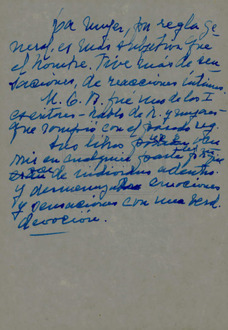 La mujer, por regla ge
neral, es más subjetiva que
el hombre. Vive más de sen
saciones, de reacciones íntimas.
M. C. B. fué uno de los I
escritores — hablo de H. y mujeres—
que rompió con el pasado reg.
Sus libros
mis en cualquier parte
de individuos adentro.
y desmenuza emociones
y sensaciones con una verd.
devoción.